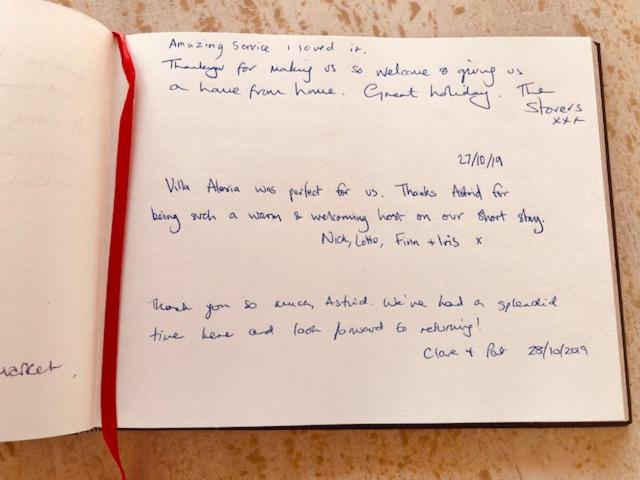 Amazing Service I loved it.
Thankyou for making us so welcome & giving us
a home from home. Great holiday. The
Stovers
xxx
27/10/19
Villa Alexia was perfect for us. Thanks Astrid for
being such a warm & welcoming host on our short stay.
Nick, Lotte, Finn + Iris x
Thank you so much, Astrid. We've had a splendid
time here and look forward to returning!
Clare + Pat 28/10/2019
market